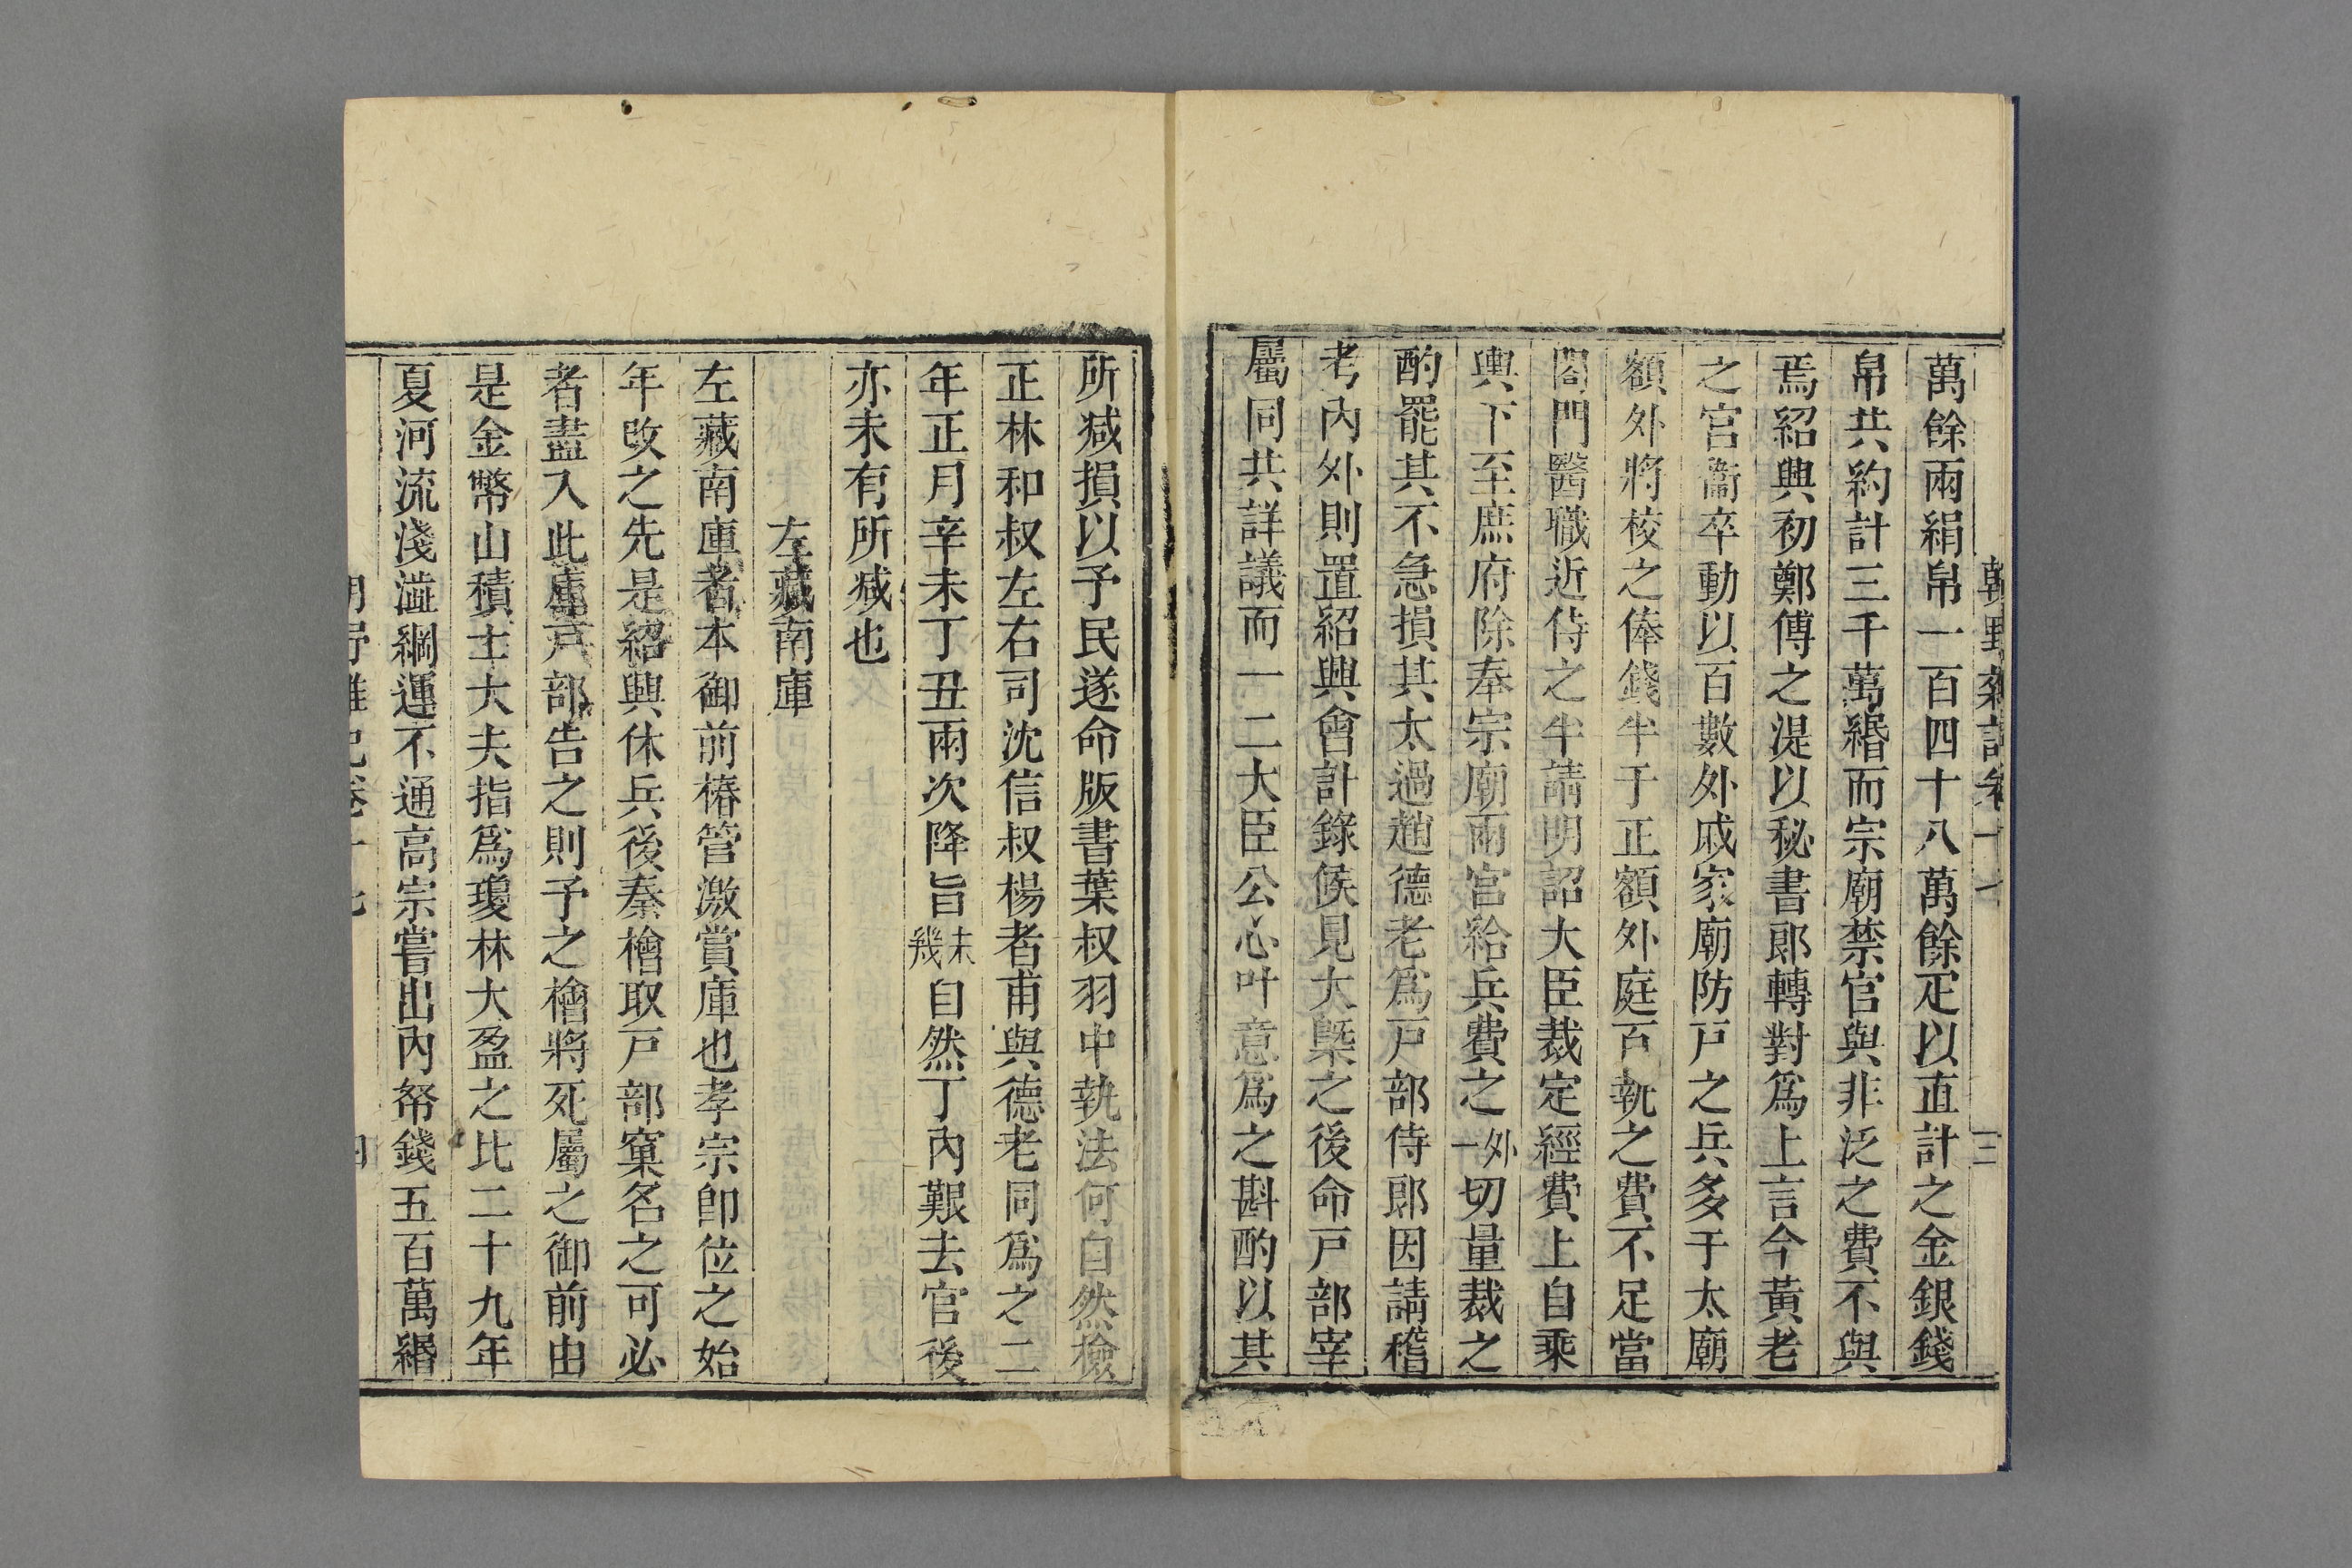 朝野雜記卷十七 三
萬餘兩絹帛一百四十八萬餘疋以直計之金銀錢
帛共約計三千萬緡而宗廟禁官與非泛之費不與
焉紹興初鄭傅之湜以秘書郎轉對爲上言今黃老
之宮衞卒動以百數外戚家廟防戸之兵多于太廟
額外將校之俸錢半于正額外庭百執之費不足當
閤門醫職近侍之半請明詔大臣裁定經費上自乘
輿下至庶府除奉宗廟兩宮給兵費之外一切量裁之
酌罷其不急損其太過趙德老爲戸部侍郎因請稽
考內外則置紹興會計錄候見大槩之後命戸部宰
屬同共詳議而一二大臣公心叶意爲之斟酌以其
所减損以予民遂命版書葉叔羽中執法何自然檢
正林和叔左右司沈信叔楊者甫與德老同爲之二
年正月辛未丁丑兩次降旨未幾自然丁內艱去官後
亦未有所减也
左藏南庫
左藏南庫者本御前樁管激賞庫也孝宗卽位之始
年改之先是紹興休兵後秦檜取戸部窠名之可必
者盡入此庫戸部告之則予之檜將死屬之御前由
是金幣山積士大夫指爲瓊林大盈之比二十九年
夏河流淺澁綱運不通高宗嘗出內帑錢五百萬緡